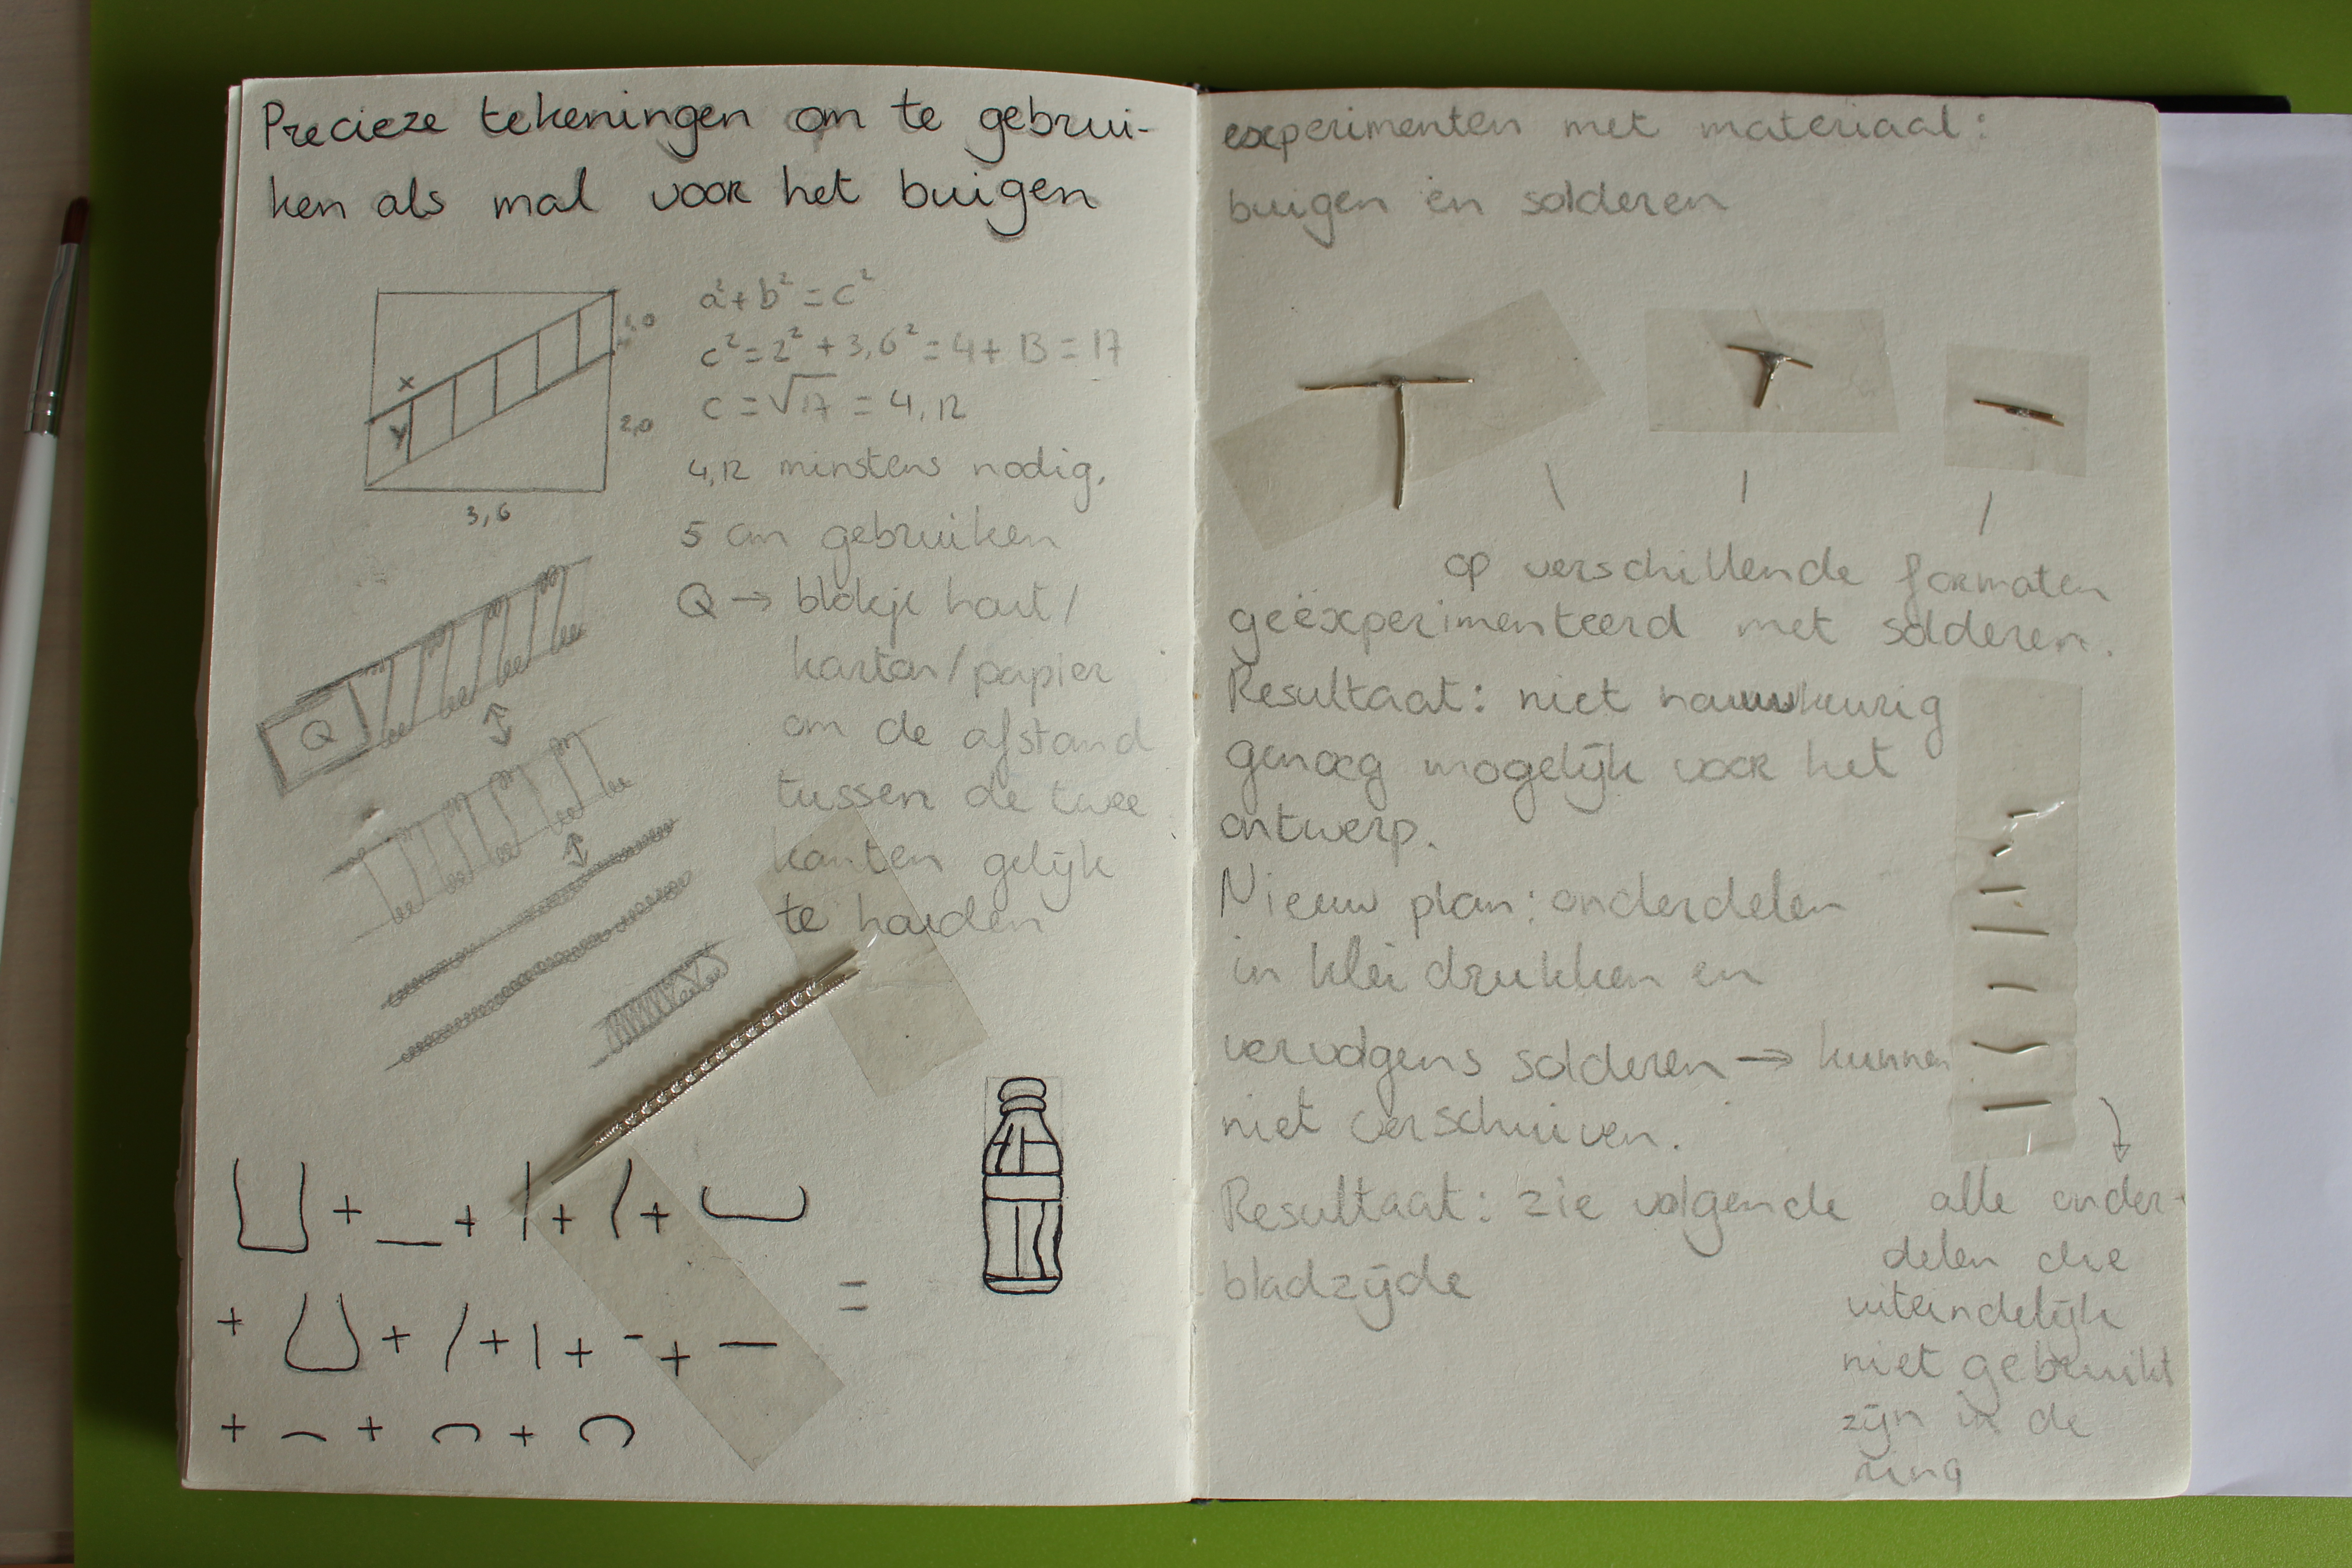 Precieze tekeningen om te gebrui-
ken als mal voor het buigen
a²+b²=c²
c²=2²+3,6²=4+13=17
c=√17=4,12
4,12 minstens nodig,
5 cm gebruiken
Q→ blokje hout/
karton/papier
om de afstand
tussen de twee
kanten gelijk
te houden
x
y
1,0
2,0
3,6
Q
+ + + +
=
+ + + + +
+ + +
experimenten met materiaal:
buigen en solderen
op verschillende formaten
geëxperimenteerd met solderen.
Resultaat: niet nauwkeurig
genoeg mogelijk voor het
ontwerp.
Nieuw plan: onderdelen
in klei drukken en
vervolgens solderen → kunnen
niet verschuiven.
Resultaat: zie volgende
bladzijde
alle onder-
delen die
uiteindelijk
niet gebruikt
zijn in de
ring